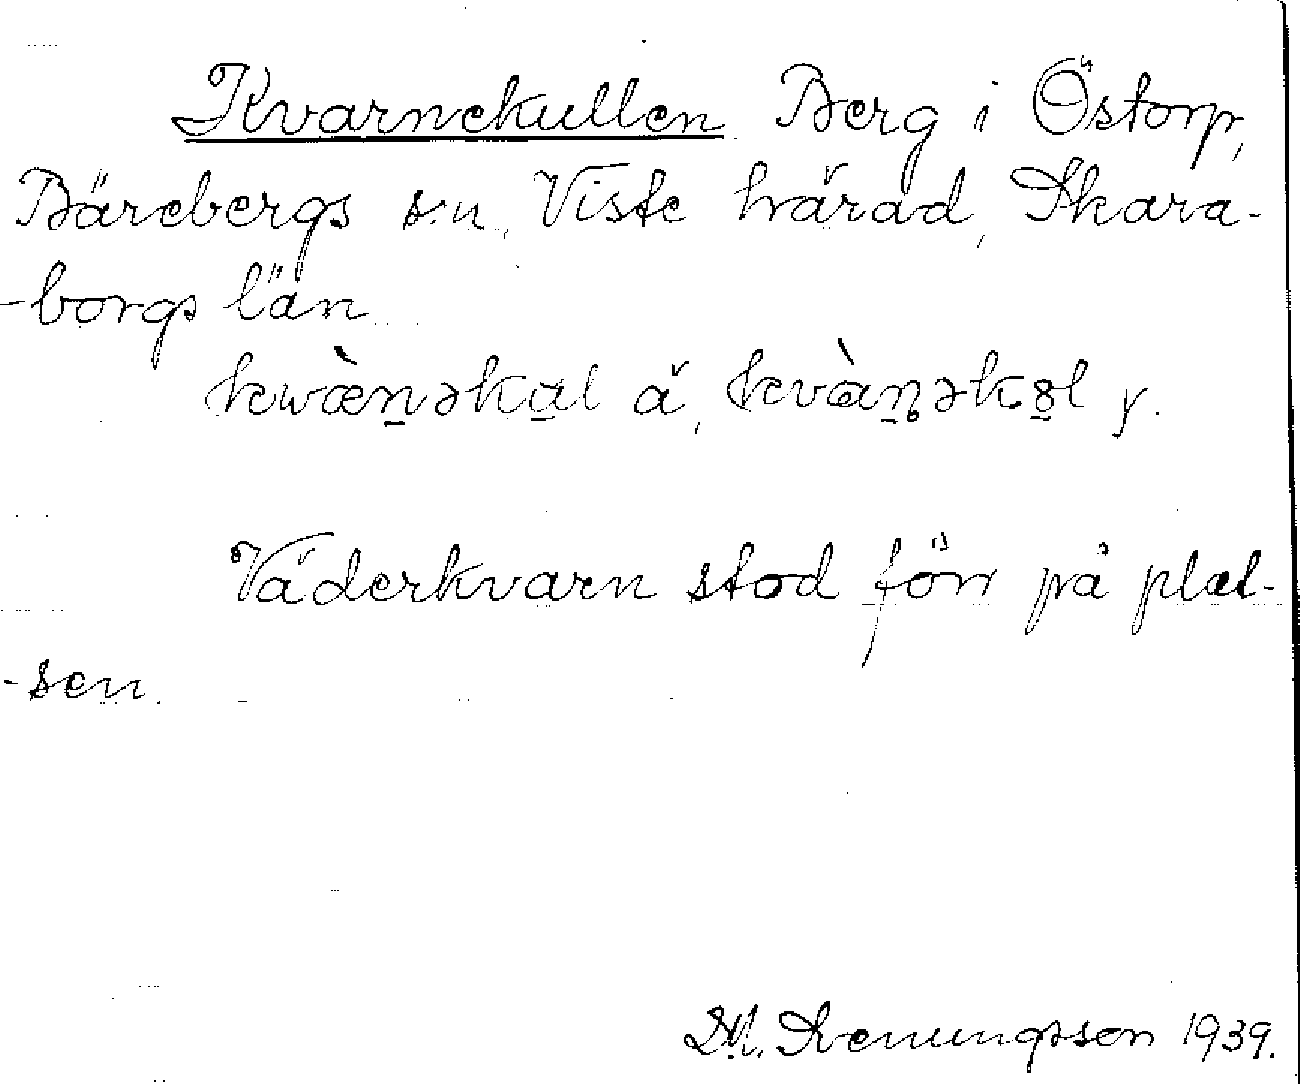 Kvarnekullen Berg i Östorp,
Bärebergs s:n, Viste härad, Skara-
-borgs län
kwæ̀nəkal ä, kvànəkol y.
Väderkvarn stod förr på plat-
-sen.
1939.